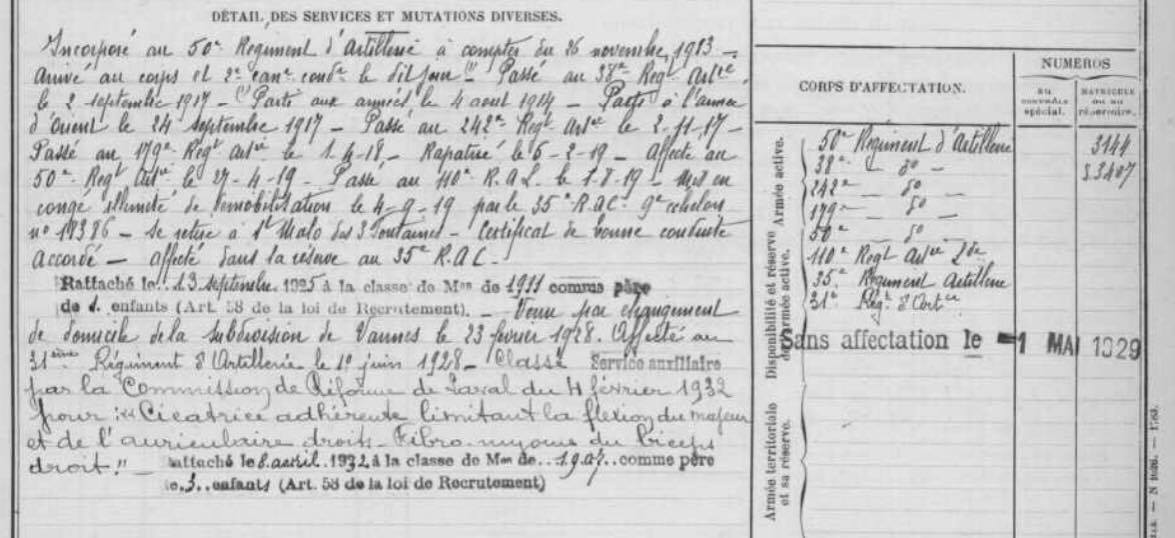 DÉTAIL DES SERVICES ET MUTATIONS DIVERSES.
Incorporé au 50e Régiment d'Artillerie à compter du 26 novembre 1913 —
arrivé au corps et 2e can. cond. le dit jour (1) Passé au 38e Regt Artie
le 2 septembre 1917 — (1) Parti aux armées le 4 aout 1914 — Parti à l'armée
d'Orient le 24 septembre 1917 — Passé au 242e Regt Artie le 2-11-17 —
Passé au 179e Regt Artie le 1-4-18 — Rapatrié le 6-2-19 — Affecté au
50e Regt Artie le 27-4-19 — Passé au 110e R.A.L. le 1-8-19 — Mis en
congé illimité de démobilisation le 4-9-19 par le 35e R.A.C. 9e échelon
no — se retire à St Malo des 3 Fontaines — Certificat de bonne conduite
accordé — affecté dans la réserve au 35e R.A.C. —
Rattaché le 13 septembre 1925 à la classe de Mon de 1911 comme père
de 1. enfants (Art. 58 de la loi de Recrutement). — Venu par changement
de domicile de la subdivision de Vannes le 23 février 1928. Affecté au
31ème Régiment d'Artillerie le 1er juin 1928 — Classé Service auxiliaire
par la Commission de Réforme de Laval du 4 février 1932
pour : "Cicatrice adhérente limitant la flexion du majeur
et de l'auriculaire droits — Fibro-myome du biceps
droit." — Rattaché le 8 avril 1932 à la classe de Mon de 1907 comme père
de 3 enfants (Art. 58 de la loi de Recrutement)
CORPS D'AFFECTATION.
NUMÉROS
au contrôle spécial.
matricule ou au répertoire.
Armée active.
Disponibilité et réserve de l'armée active.
Armée territoriale et sa réserve.
50e Régiment d'Artillerie 3144
38e — do — 53407
242e — do —
179e — do —
50e — do —
110e Regt Artie Lde
35e Régiment Artillerie
31e Rég. d'Art ie
Sans affectation le -1 MAI 1929